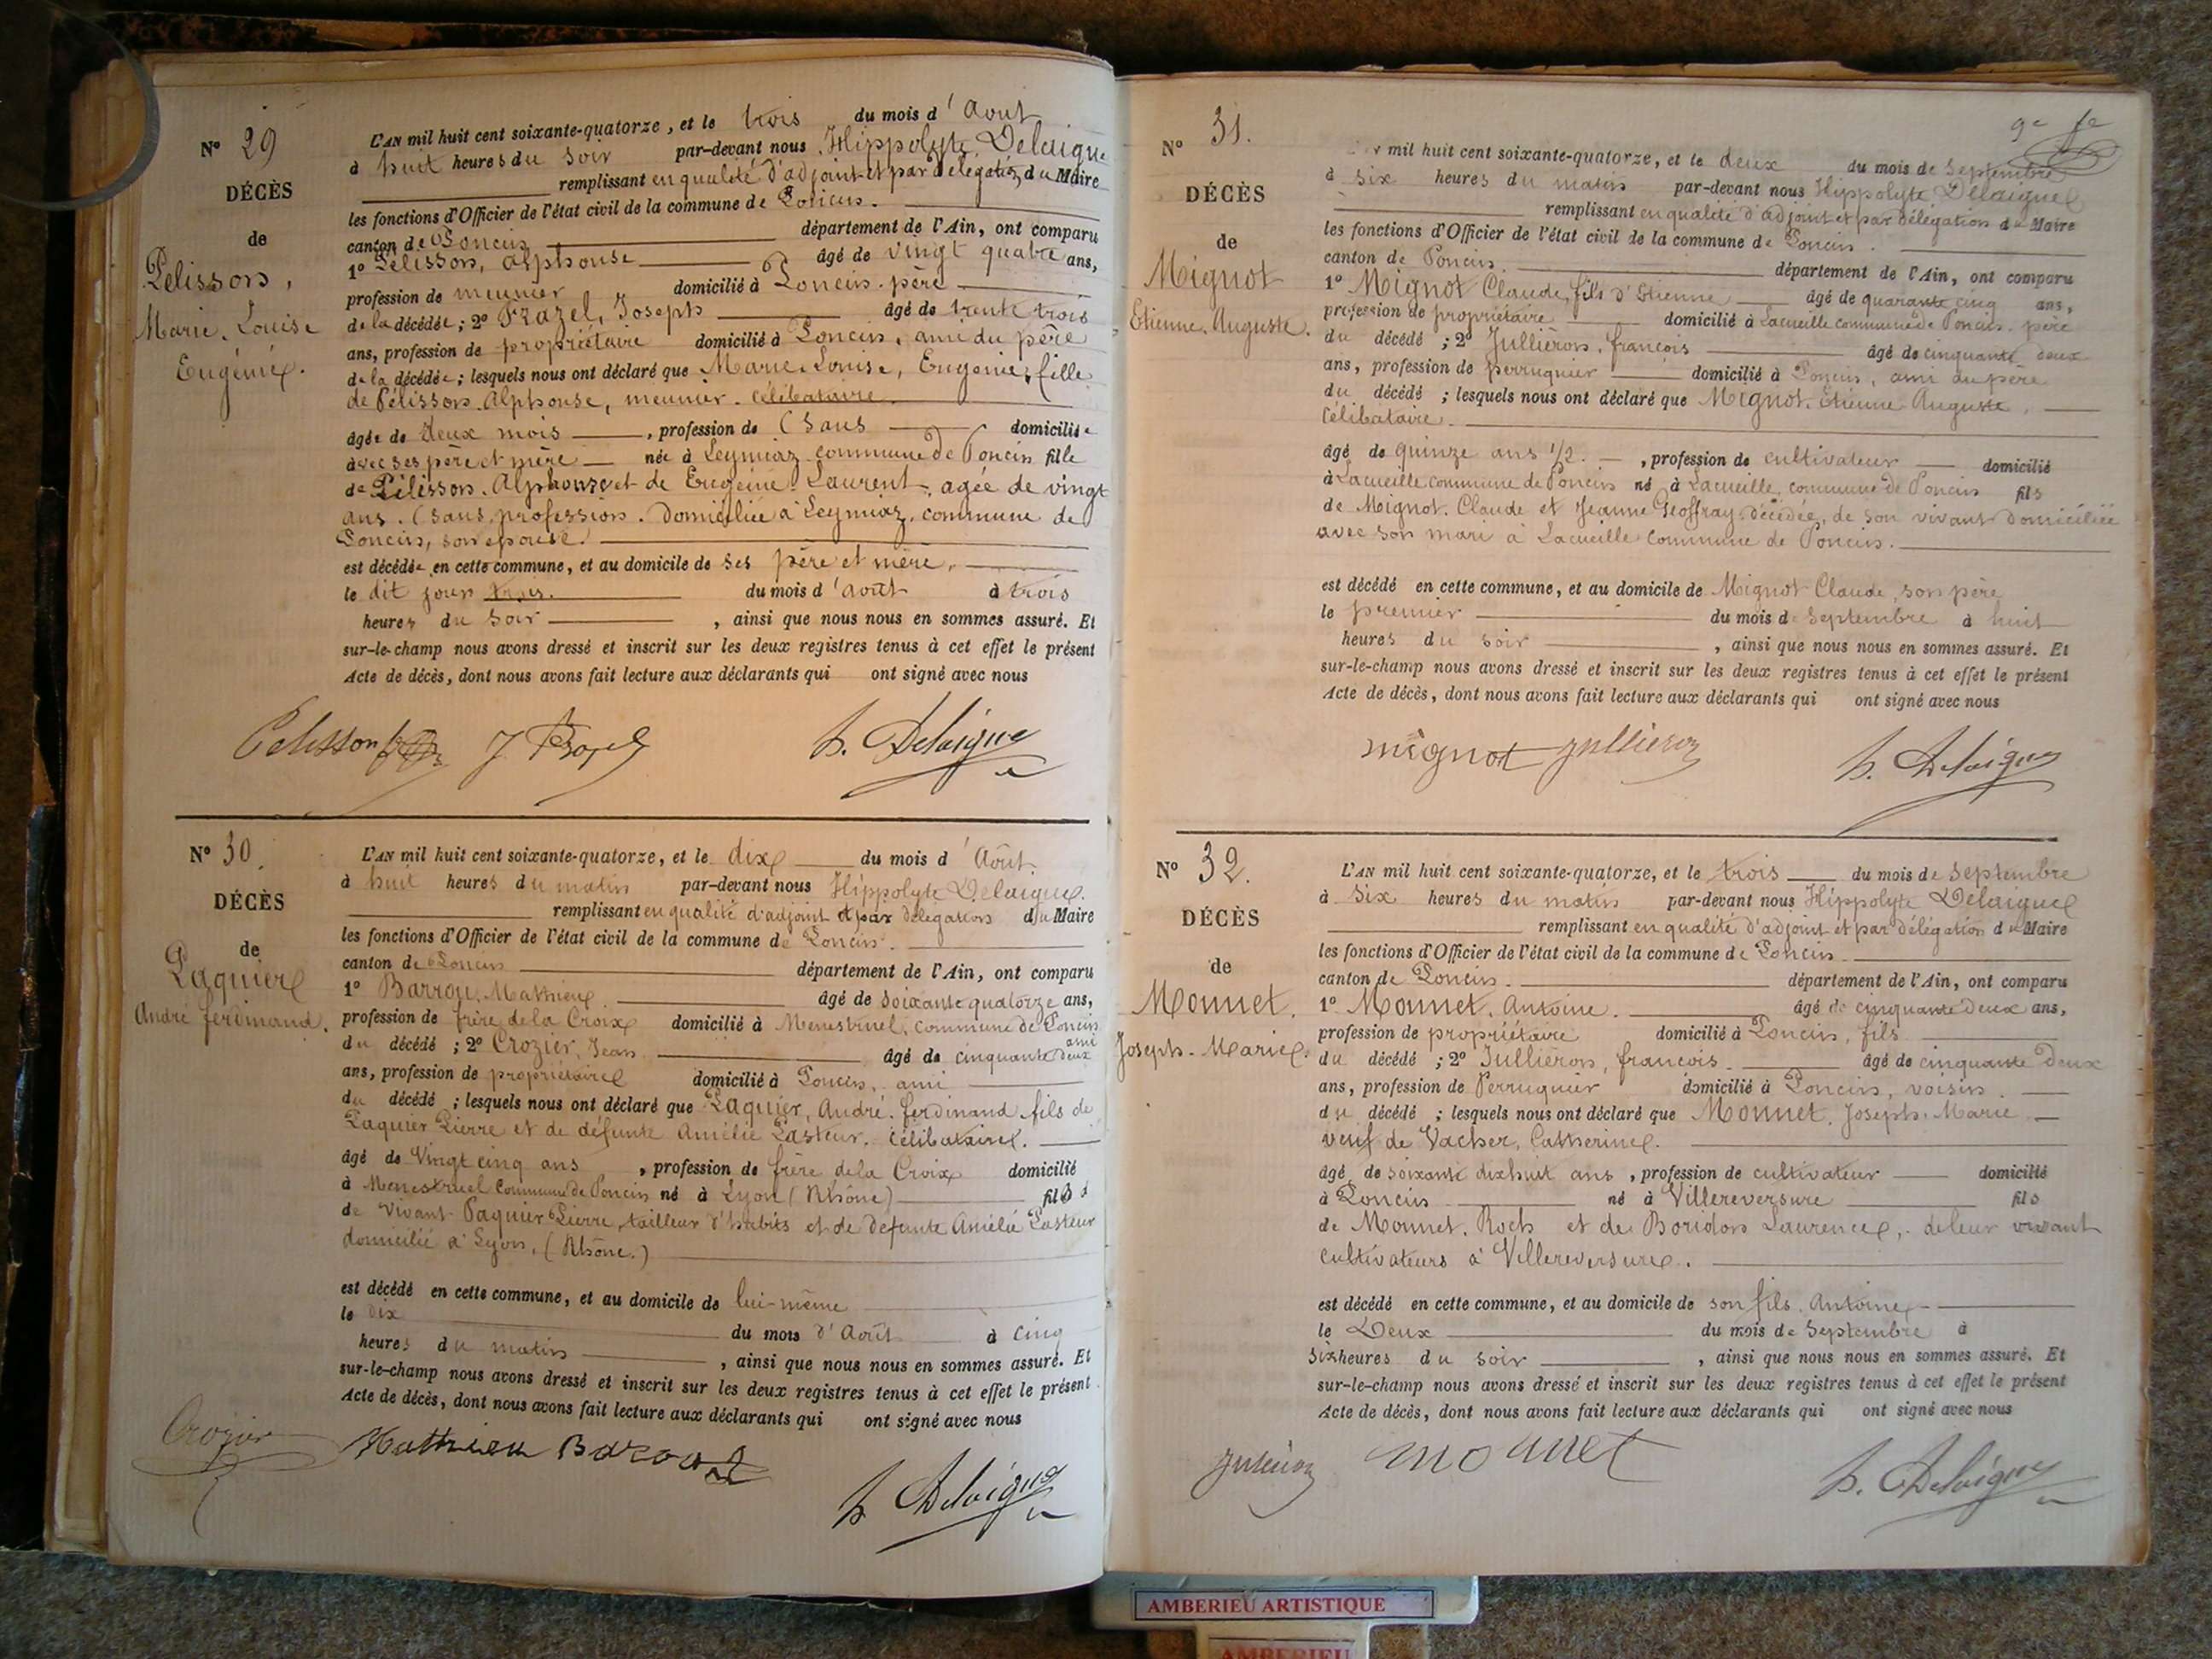 Nº 29
DÉCÈS
de
Pelisson,
Marie. Louise
Eugénie.
L'AN mil huit cent soixante-quatorze, et le trois du mois d'Aout
à huit heures du soir par-devant nous Hippolyte Delaigue
remplissant en qualité d'adjoint et par délégation du Maire
les fonctions d'Officier de l'état civil de la commune de Poncin.
canton de Poncin département de l'Ain, ont comparu
1º Pelisson, alphonse âgé de vingt quatre ans,
profession de meunier domicilié à Poncin. père
de la décédée; 2º Joseph âgé de trente trois
ans, profession de propriétaire domicilié à Poncin, ami du père
de la décédée; lesquels nous ont déclaré que Marie Louise, Eugénie, fille
de Pélisson Alphonse, meunier. célibataire
âgée de deux mois, profession de Sans domiciliée
avec ses père et mère née à Leymiaz commune de Poncin fille
de Pélisson. Alphonse et de Eugénie Laurent, agée de vingt
ans. Sans profession. Domiciliée à Leymiaz, commune de
Poncin, son épouse.
est décédée en cette commune, et au domicile de ses père et mère.
le dit jour trois. du mois d'août à trois
heures du soir, ainsi que nous nous en sommes assuré. Et
sur-le-champ nous avons dressé et inscrit sur les deux registres tenus à cet effet le présent
Acte de décès, dont nous avons fait lecture aux déclarants qui ont signé avec nous
Pelisson h. Delaigue
Nº 30.
DÉCÈS
de
Paquier
André ferdinand.
L'AN mil huit cent soixante-quatorze, et le dix du mois d'Août.
à huit heures du matin par-devant nous Hippolyte Delaigue.
remplissant en qualité d'adjoint et par délégation du Maire
les fonctions d'Officier de l'état civil de la commune de Poncin.
canton de Poncin département de l'Ain, ont comparu
1º Barrou, Mathieu. âgé de soixante quatorze ans,
profession de frère de la Croix domicilié à Menestruel, commune de Poncin
ami
du décédé; 2º Crozier, Jean âgé de cinquante deux
ans, profession de propriétaire domicilié à Poncin, ami
du décédé; lesquels nous ont déclaré que Paquier, André. ferdinand fils de
Paquier Pierre et de défunte Amélie Pasteur. célibataire.
âgé de Vingt cinq ans, profession de frère de la Croix domicilié
à Menestruel Commune de Poncin né à Lyon (Rhône) fils
de vivant Paquier Pierre, tailleur d'habits et de defunte Amélie Pasteur
domicilié à Lyon, (Rhône.)
est décédé en cette commune, et au domicile de lui-même
le dix du mois d'Août à cinq
heures du matin, ainsi que nous nous en sommes assuré. Et
sur-le-champ nous avons dressé et inscrit sur les deux registres tenus à cet effet le présent
Acte de décès, dont nous avons fait lecture aux déclarants qui ont signé avec nous
Crozier Mathieu Barou
h Delaigue
9e fe
Nº 31.
DÉCÈS
de
Mignot
Etienne. Auguste.
mil huit cent soixante-quatorze, et le deux du mois de Septembre
à six heures du matin par-devant nous Hyppolyte Delaigue
remplissant en qualité d'adjoint et par délégation du Maire
les fonctions d'Officier de l'état civil de la commune de Poncin.
canton de Poncin. département de l'Ain, ont comparu
1º Mignot Claude, fils d'Etienne âgé de quarante cinq ans,
profession de propriétaire domicilié à Lacueille commune de Poncin. père
du décédé; 2º Jullieron, françois âgé de cinquante deux
ans, profession de perruquier domicilié à Poncin, ami du père
du décédé; lesquels nous ont déclaré que Mignot. Etienne Auguste,
Célibataire.
âgé de quinze ans 1/2., profession de cultivateur domicilié
à Lacueille commune de Poncin né à Lacueille, commune de Poncin fils
de Mignot. Claude et Jeanne Geoffray, décédée, de son vivant domiciliée
avec son mari à Lacueille Commune de Poncin.
est décédé en cette commune, et au domicile de Mignot Claude, son père
le premier du mois de Septembre à huit
heures du soir, ainsi que nous nous en sommes assuré. Et
sur-le-champ nous avons dressé et inscrit sur les deux registres tenus à cet effet le présent
Acte de décès, dont nous avons fait lecture aux déclarants qui ont signé avec nous
mignot Jullieron h. Delaigue
Nº 32.
DÉCÈS
de
Monnet.
Joseph. Marie.
L'AN mil huit cent soixante-quatorze, et le trois du mois de Septembre
à six heures du matin par-devant nous Hippolyte Delaigue
remplissant en qualité d'adjoint et par délégation du Maire
les fonctions d'Officier de l'état civil de la commune de Poncin
canton de Poncin. département de l'Ain, ont comparu
1º Monnet, Antoine. âgé de cinquante deux ans,
profession de propriétaire domicilié à Poncin, fils
du décédé; 2º Jullieron, francois âgé de cinquante Deux
ans, profession de Perruquier domicilié à Poncin, voisin.
du décédé; lesquels nous ont déclaré que Monnet, Joseph. Marie
veuf de Vacher, Catherine.
âgé de soixante dix huit ans, profession de cultivateur domicilié
à Poncin né à Villereversure fils
de Monnet. Roch et de Boridon Laurence, de leur vivant
cultivateurs à Villereversure.
est décédé en cette commune, et au domicile de son fils. Antoine
le Deux du mois de Septembre à
six heures du soir, ainsi que nous nous en sommes assuré. Et
sur-le-champ nous avons dressé et inscrit sur les deux registres tenus à cet effet le présent
Acte de décès, dont nous avons fait lecture aux déclarants qui ont signé avec nous
Julieron monnet h. Delaigue
AMBERIEU ARTISTIQUE
AMBERIEU